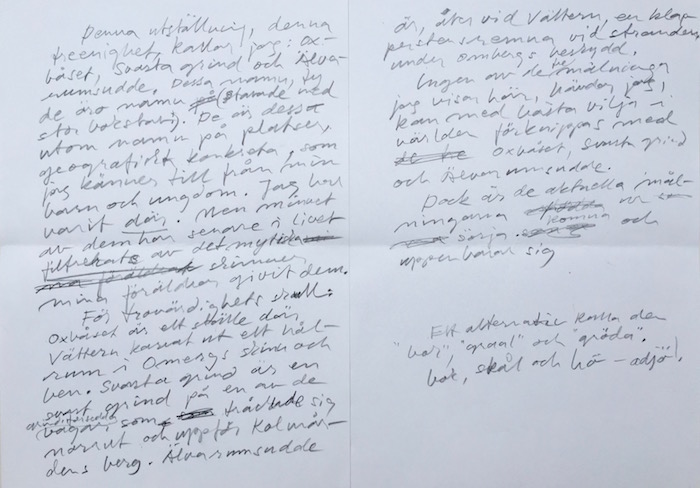 Denna utställning, denna
treenighet kallar jag: Ox-
båset, Svarta grind och Älva-
rumsudde. Dessa namn, ty
de äro namn (stavade med
stor bokstav). De är dessa
utom namn på platser,
geografiskt konkreta, som
jag känner till från min
barn och ungdom. Jag har
varit där. Men minnet
av dem har senare i livet
filtrerats av det mytiska
skimmer
mina föräldrar givit dem.
För trovärdighets skull:
Oxbåset är ett ställe där
Vättern karvat ut ett hål-
rum i Ombergs skinn och
ben. Svarta grind är en
svart grind på en av de
vägar, som trådade sig
norrut och uppför Kolmår-
dens berg. Älvarumsudde
är, åter vid Vättern, en klap-
perstensremna vid stranden,
under Ombergs beskydd.
Ingen av de tre målningar
jag visar här, hävdar jag,
kan med bästa vilja i
världen förknippas med
Oxbåset, Svarta grind
och Älvarumsudde.
Dock är de aktuella mål-
ningarna ur
komna
sörja och
uppenbarar sig
Ett alternativ kalla den
"bor", "graal" och "gröda".
bot, skål och hö – adjö!